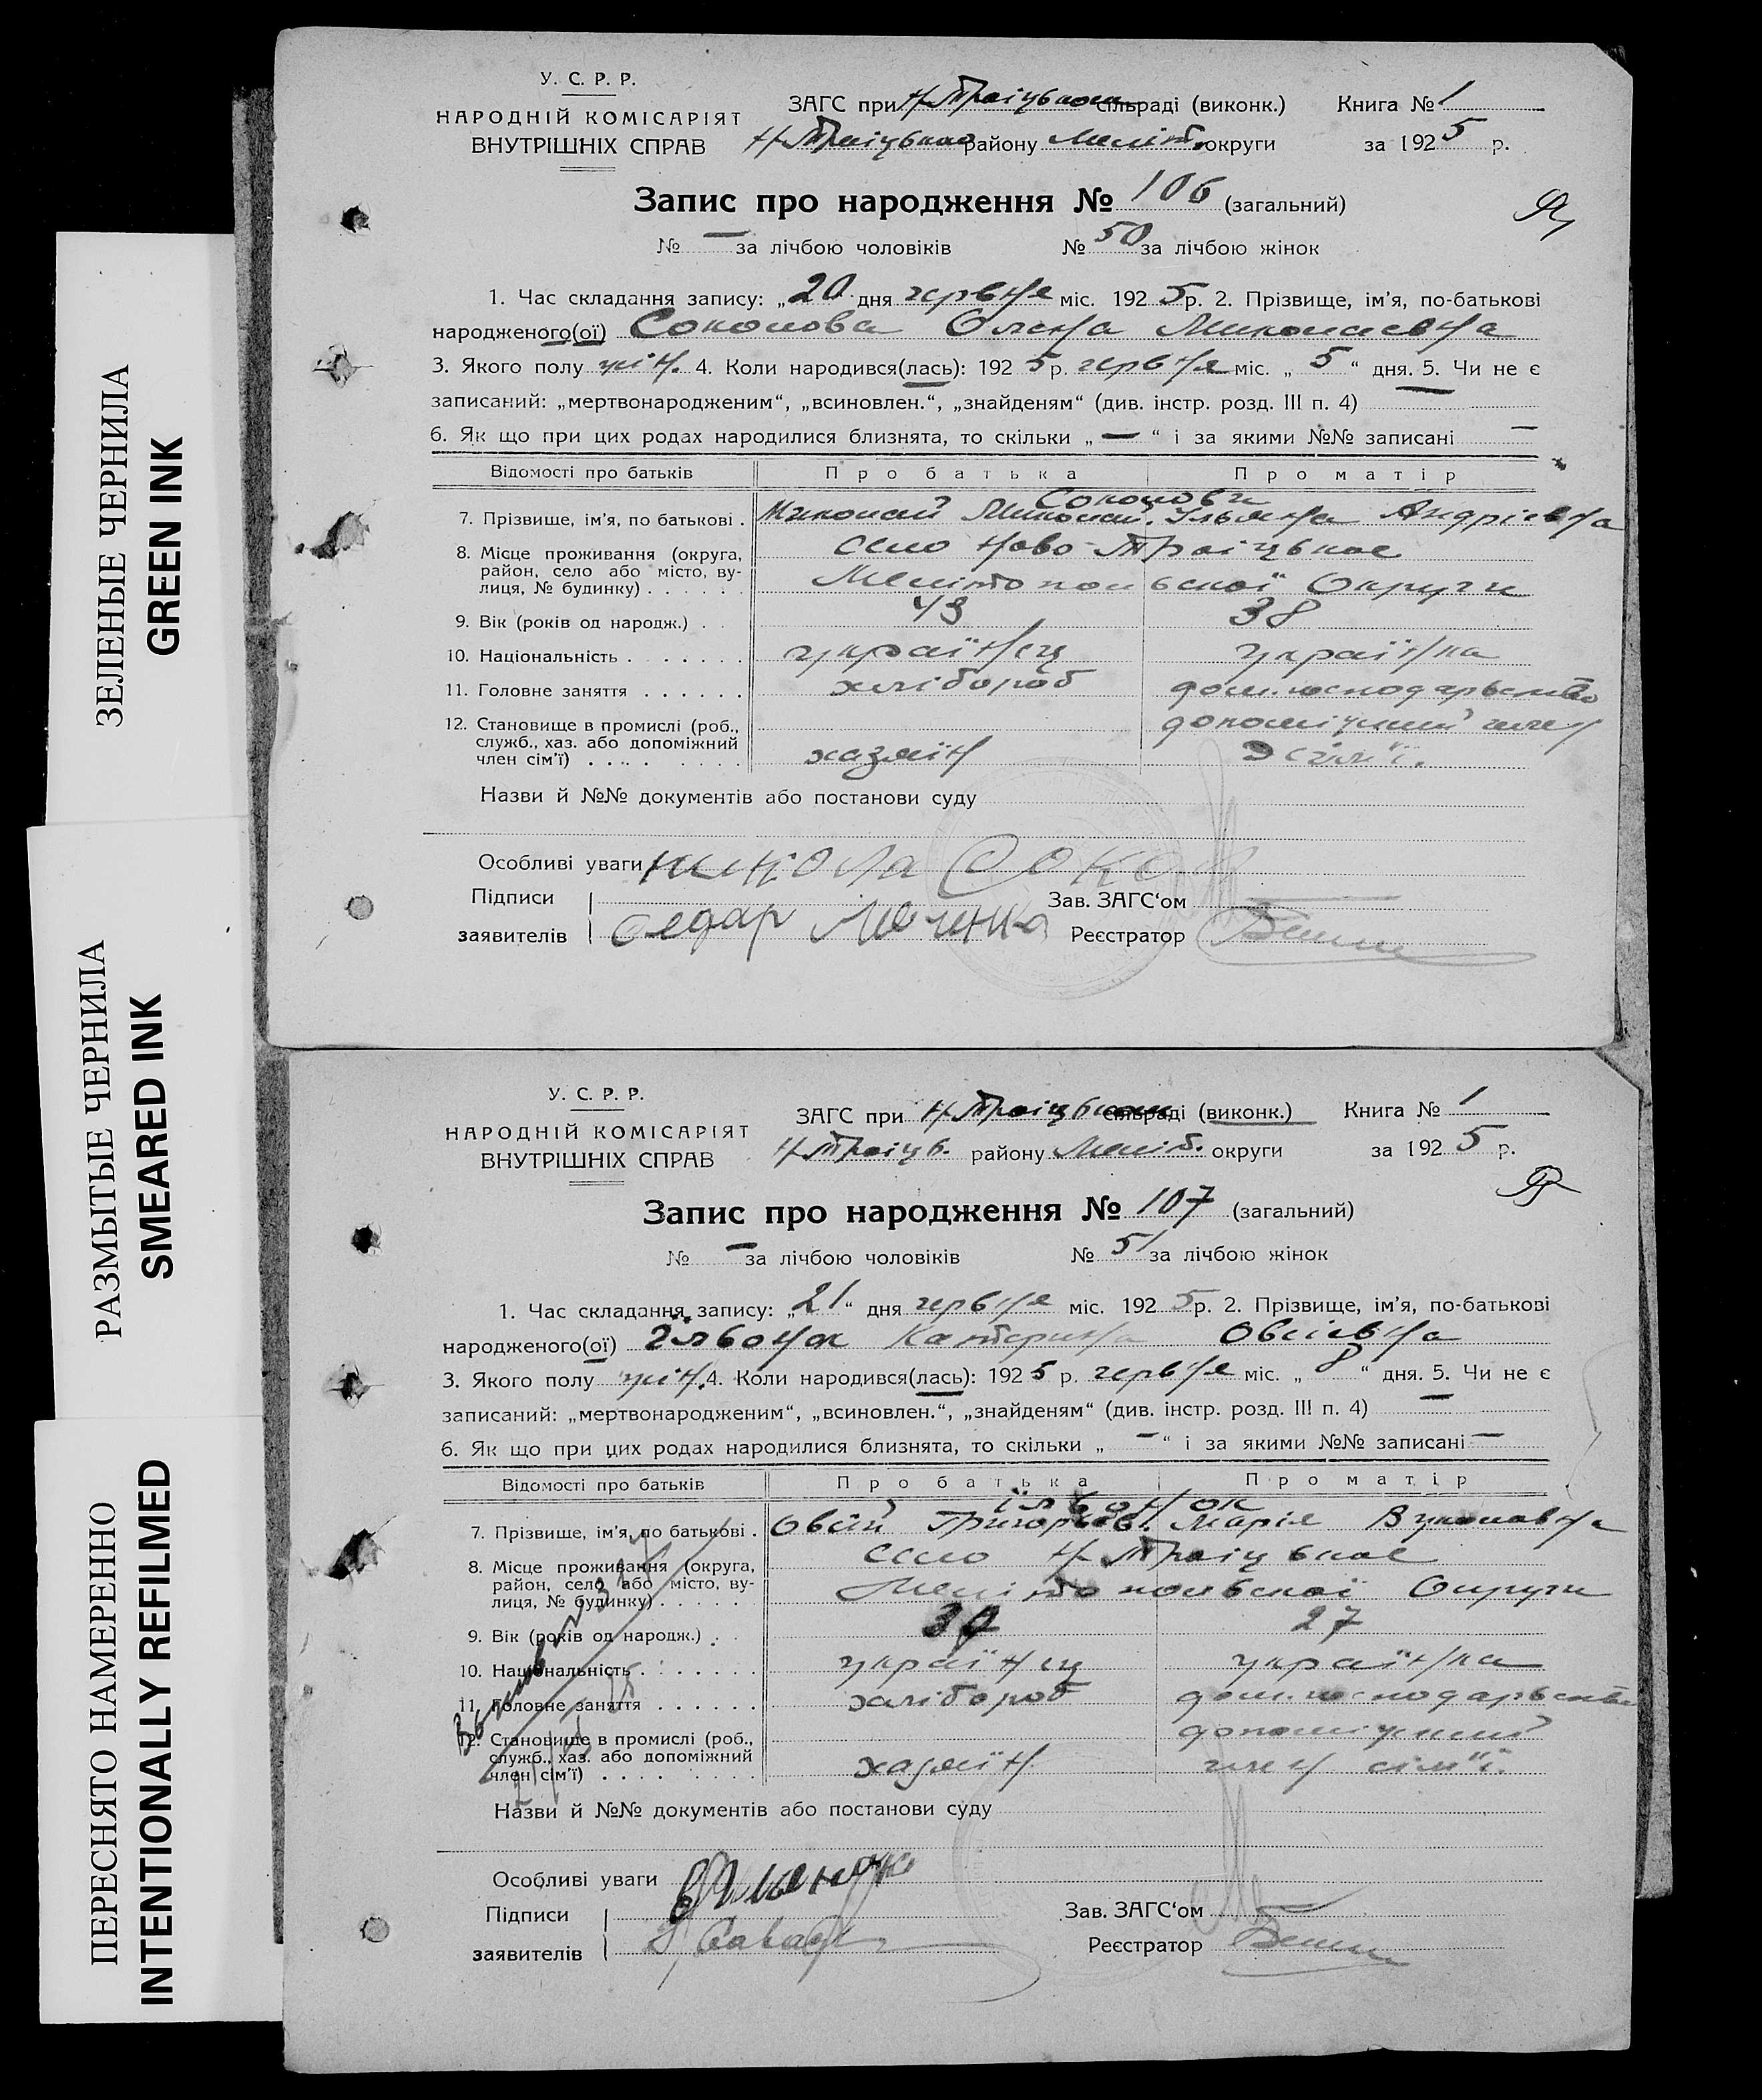 ЗЕЛЕНЫЕ ЧЕРНИЛА
GREEN INK
РАЗМЫТЫЕ ЧЕРНИЛА
SMEARED INK
ПЕРЕСНЯТО НАМЕРЕННО
INTENTIONALLY REFILMED
У. С. Р. Р.
НАРОДНІЙ КОМІСАРІЯТ
ВНУТРІШНІХ СПРАВ
ЗАГС при Н Троіцьком сільраді (виконк.) Книга № 1
Н Троіцького району Меліт. округи за 1925 р.
Запис про народження № 106 (загальний)
№ — за лічбою чоловіків № 50 за лічбою жінок
1. Час складання запису: „20 дня червня міс. 1925 р. 2. Прізвище, ім'я, по-батькові
народженого(ої) Соколова Олена Миколаевна
3. Якого полу жін. 4. Коли народився(лась): 1925 р. червня міс. „ 5 “ дня. 5. Чи не є
записаний: „мертвонародженим“, „всиновлен.“, „знайденям“ (див. інстр. розд. III п. 4) —
6. Як що при цих родах народилися близнята, то скільки „ — “ і за якими №№ записані —
Відомості про батьків Про батька Про матір
Соколови
7. Прізвище, ім'я, по батькові . Николай Миколай. Ульяна Андріевна
8. Місце проживання (округа, село Ново-Троіцькое
район, село або місто, ву-
лиця, № будинку) . . . . . . Мелітопольскої Округи
9. Вік (років од народж.) . . 43 38
10. Національність . . . . . . українец українка
11. Головне заняття . . . . . . хлібороб дом. господарьство
12. Становище в промислі (роб., допоміжний член
служб., хаз. або допоміжний
член сім'ї) . . . . . . . . хазяін сім"ї.
Назви й №№ документів або постанови суду
Особливі уваги
Підписи Зав. ЗАГС‘ом
заявителів Реєстратор
У. С. Р. Р.
НАРОДНІЙ КОМІСАРІЯТ
ВНУТРІШНІХ СПРАВ
ЗАГС при Н Троіцьком сільраді (виконк.) Книга № 1
Н Троіцьк. району Меліт. округи за 1925 р.
Запис про народження № 107 (загальний)
№ — за лічбою чоловіків № 51 за лічбою жінок
1. Час складання запису: „21“ дня червня міс. 1925 р. 2. Прізвище, ім'я, по-батькові
народженого(ої) Катерина Овсіевна
3. Якого полу жін. 4. Коли народився(лась): 1925 р. червня міс. „ 8 “ дня. 5. Чи не є
записаний: „мертвонародженим“, „всиновлен.“, „знайденям“ (див. інстр. розд. III п. 4) —
6. Як що при цих родах народилися близнята, то скільки „ — “ і за якими №№ записані —
Відомості про батьків Про батька Про матір
7. Прізвище, ім'я, по батькові . Овсій Григорьев. Марія
8. Місце проживання (округа, село Н Троіцькое
район, село або місто, ву-
лиця, № будинку) . . . . . Мелітопольскої Округи
9. Вік (років од народж.) . . 27
10. Національність . . . . . . українец українка
11. Головне заняття . . . . . . хлібороб дом. господарьство
12. Становище в промислі (роб., допоміжний
служб., хаз. або допоміжний
член сім'ї) . . . . . . . . хазяїн член сім"ї.
Назви й №№ документів або постанови суду
Особливі уваги
Підписи Зав. ЗАГС‘ом
заявителів Реєстратор